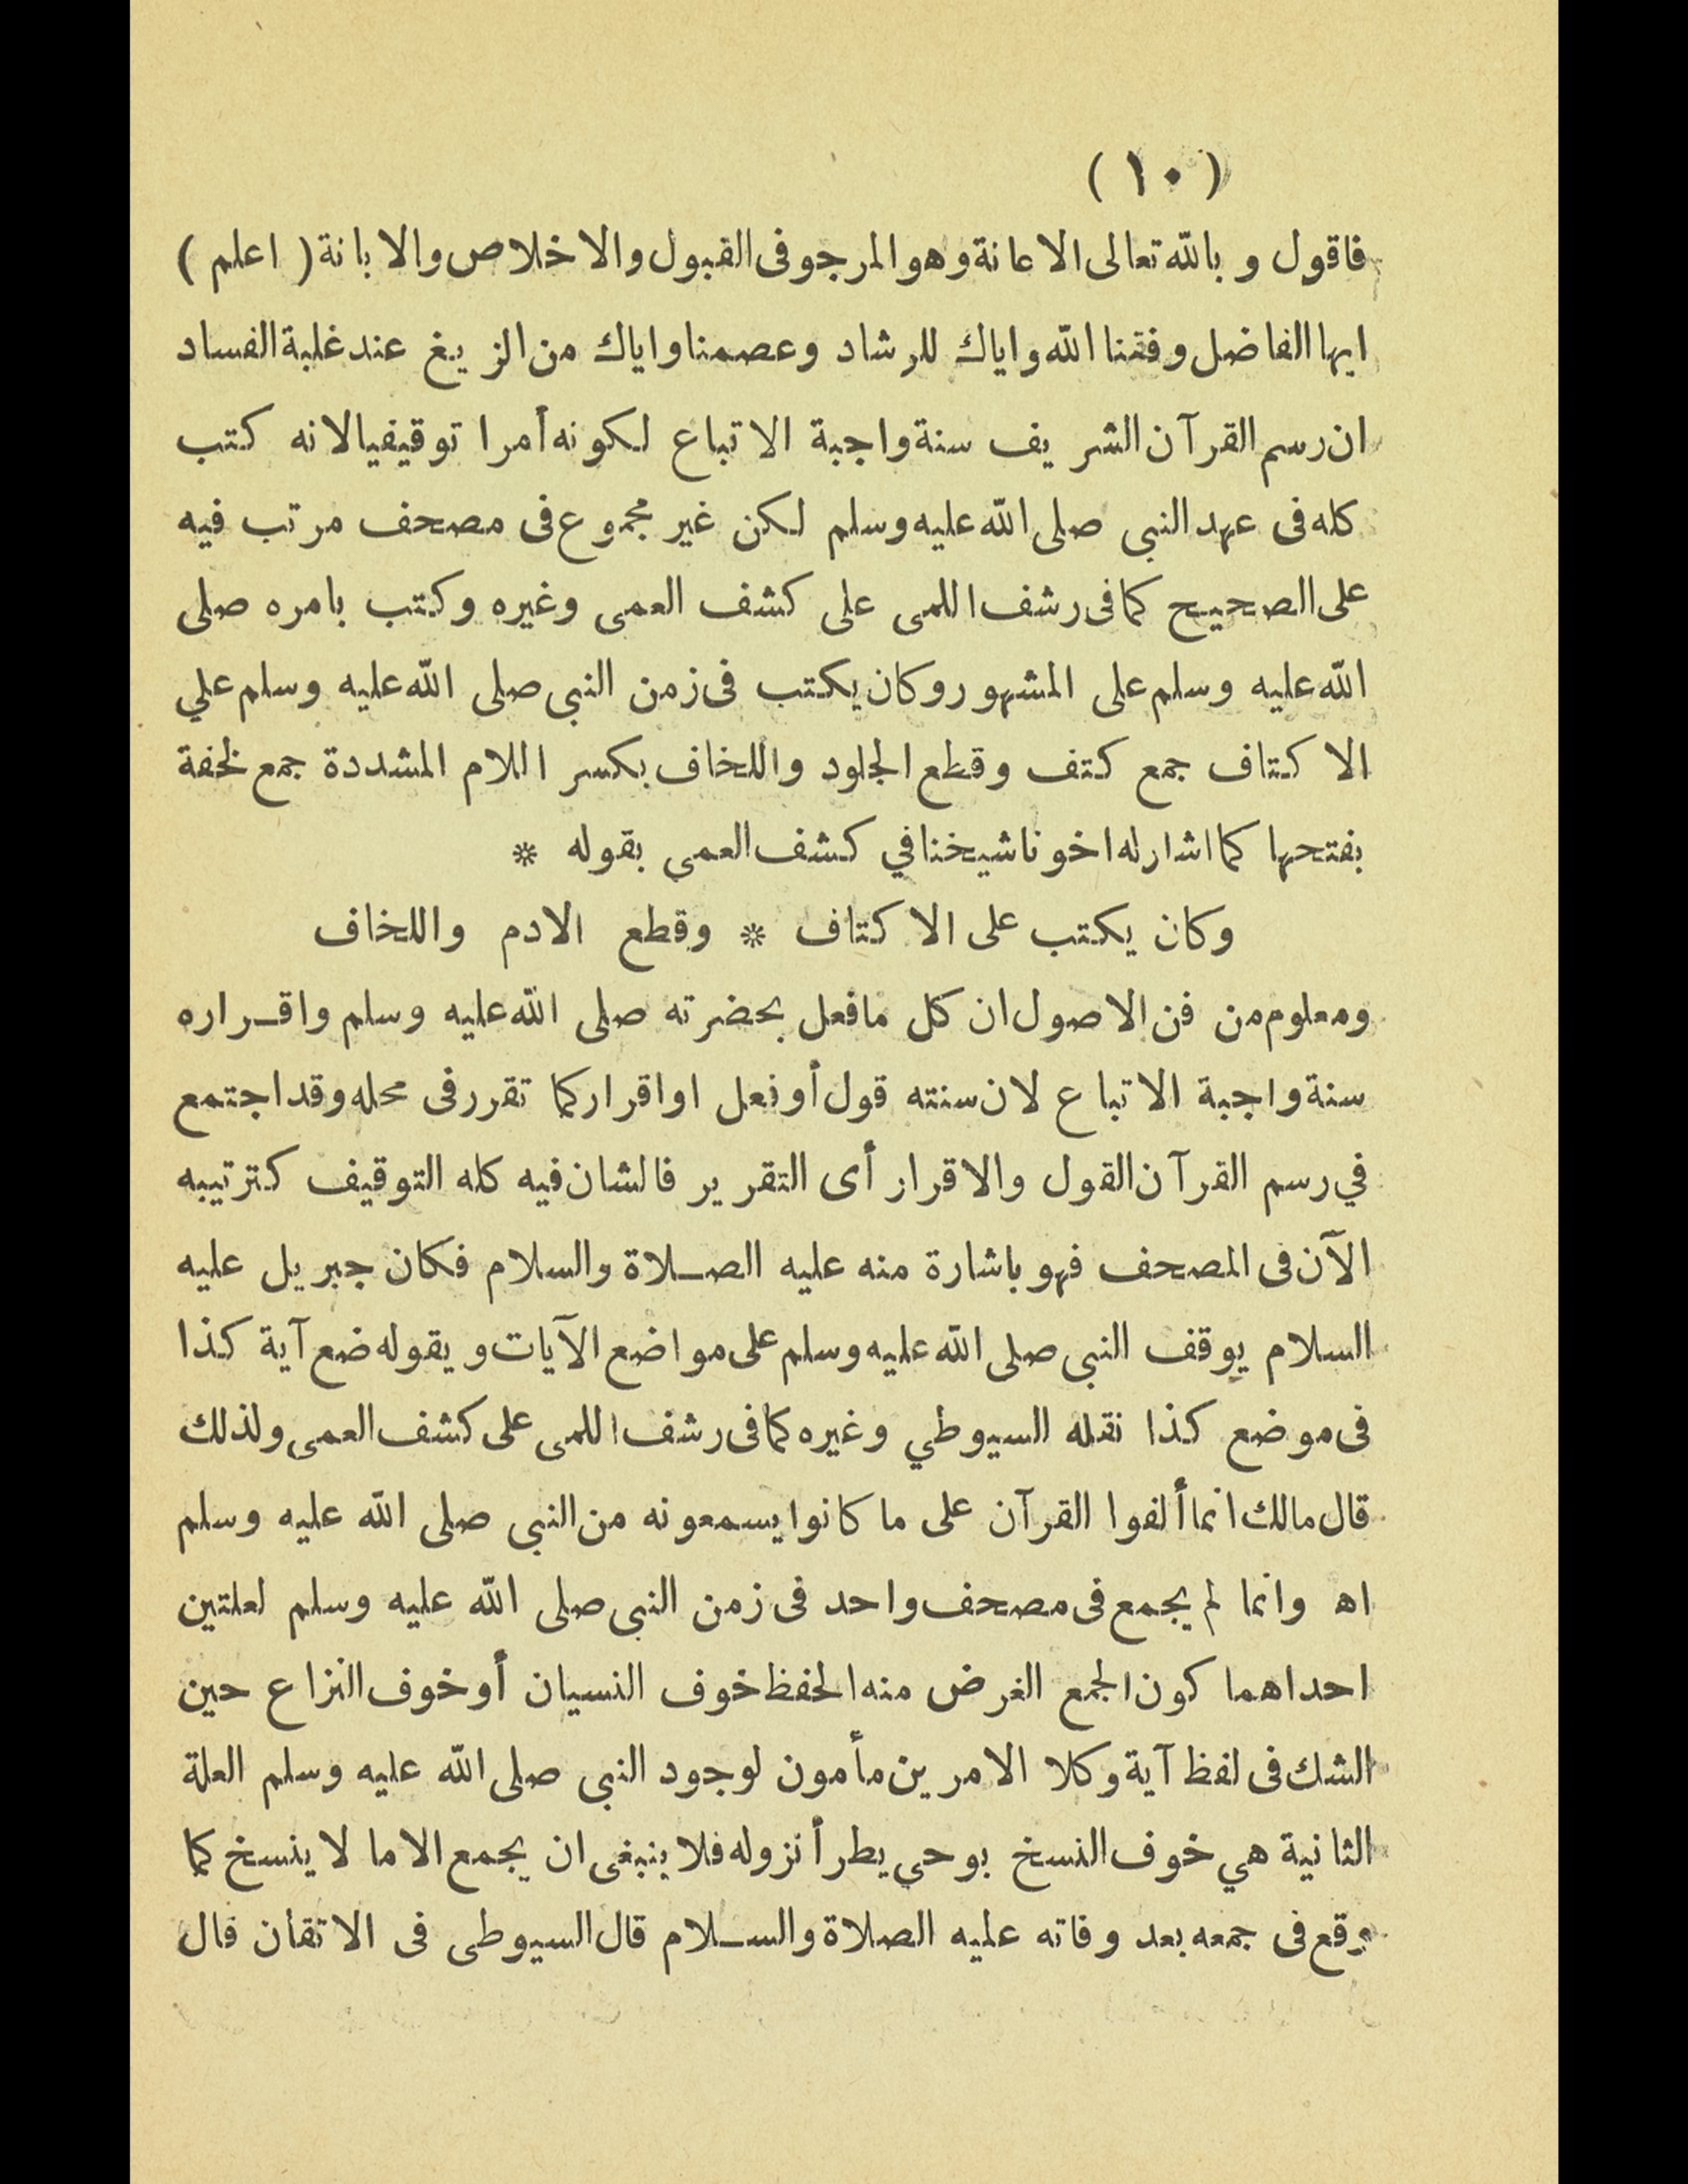 ( ١٠ )
فاقول وبالله تعالى الاعانة وهو المرجو فى القبول والاخلاص والابانة ( اعلم )
ايها الفاضل وفقنا الله واياك للرشاد وعصمنا واياك من الزيغ عند غلبة الفساد
ان رسم القرآن الشريف سنة واجبة الاتباع لكونه أمرا توقيفيا لانه كتب
كله فى عهد النبى صلى الله عليه وسلم لكن غير مجموع فى مصحف مرتب فيه
على الصحيح كما فى رشف اللمى على كشف العمى وغيره وكتب بامره صلى
الله عليه وسلم على المشهور وكان يكتب فى زمن النبى صلى الله عليه وسلم علي
الاكتاف جمع كتف وقطع الجلود واللخاف بكسر اللام المشددة جمع لخفة
بفتحها كما اشار له اخونا شيخنا في كشف العمى بقوله *
وكان يكتب على الاكتاف * وقطع الادم واللخاف
ومعلوم من فن الاصول ان كل مافعل بحضرته صلى الله عليه وسلم واقـراره
سنة واجبة الاتباع لان سنته قول أو فعل او اقرار كما تقرر فى محله وقد اجتمع
في رسم القرآن القول والاقرار أى التقرير فالشان فيه كله التوقيف كترتيبه
الآن فى المصحف فهو باشارة منه عليه الصـلاة والسلام فكان جبريل عليه
السلام يوقف النبى صلى الله عليه وسلم على مواضع الآيات ويقوله ضع آية كذا
فى موضع كذا نقله السيوطي وغيره كما فى رشف اللمى على كشف العمى ولذلك
قال مالك انما ألفوا القرآن على ما كانوا يسمعونه من النبى صلى الله عليه وسلم
اه وانما لم يجمع فى مصحف واحد فى زمن النبى صلى الله عليه وسلم لعلتين
احداهما كون الجمع الغرض منه الحفظ خوف النسيان أو خوف النزاع حين
الشك فى لفظ آية وكلا الامرين مأمون لوجود النبى صلى الله عليه وسلم العلة
الثانية هي خوف النسخ بوحي يطرأ نزوله فلا ينبغى ان يجمع الاما لا ينسخ كما
وقع فى جمعه بعد وفاته عليه الصلاة والسـلام قال السيوطى فى الاتقان قال